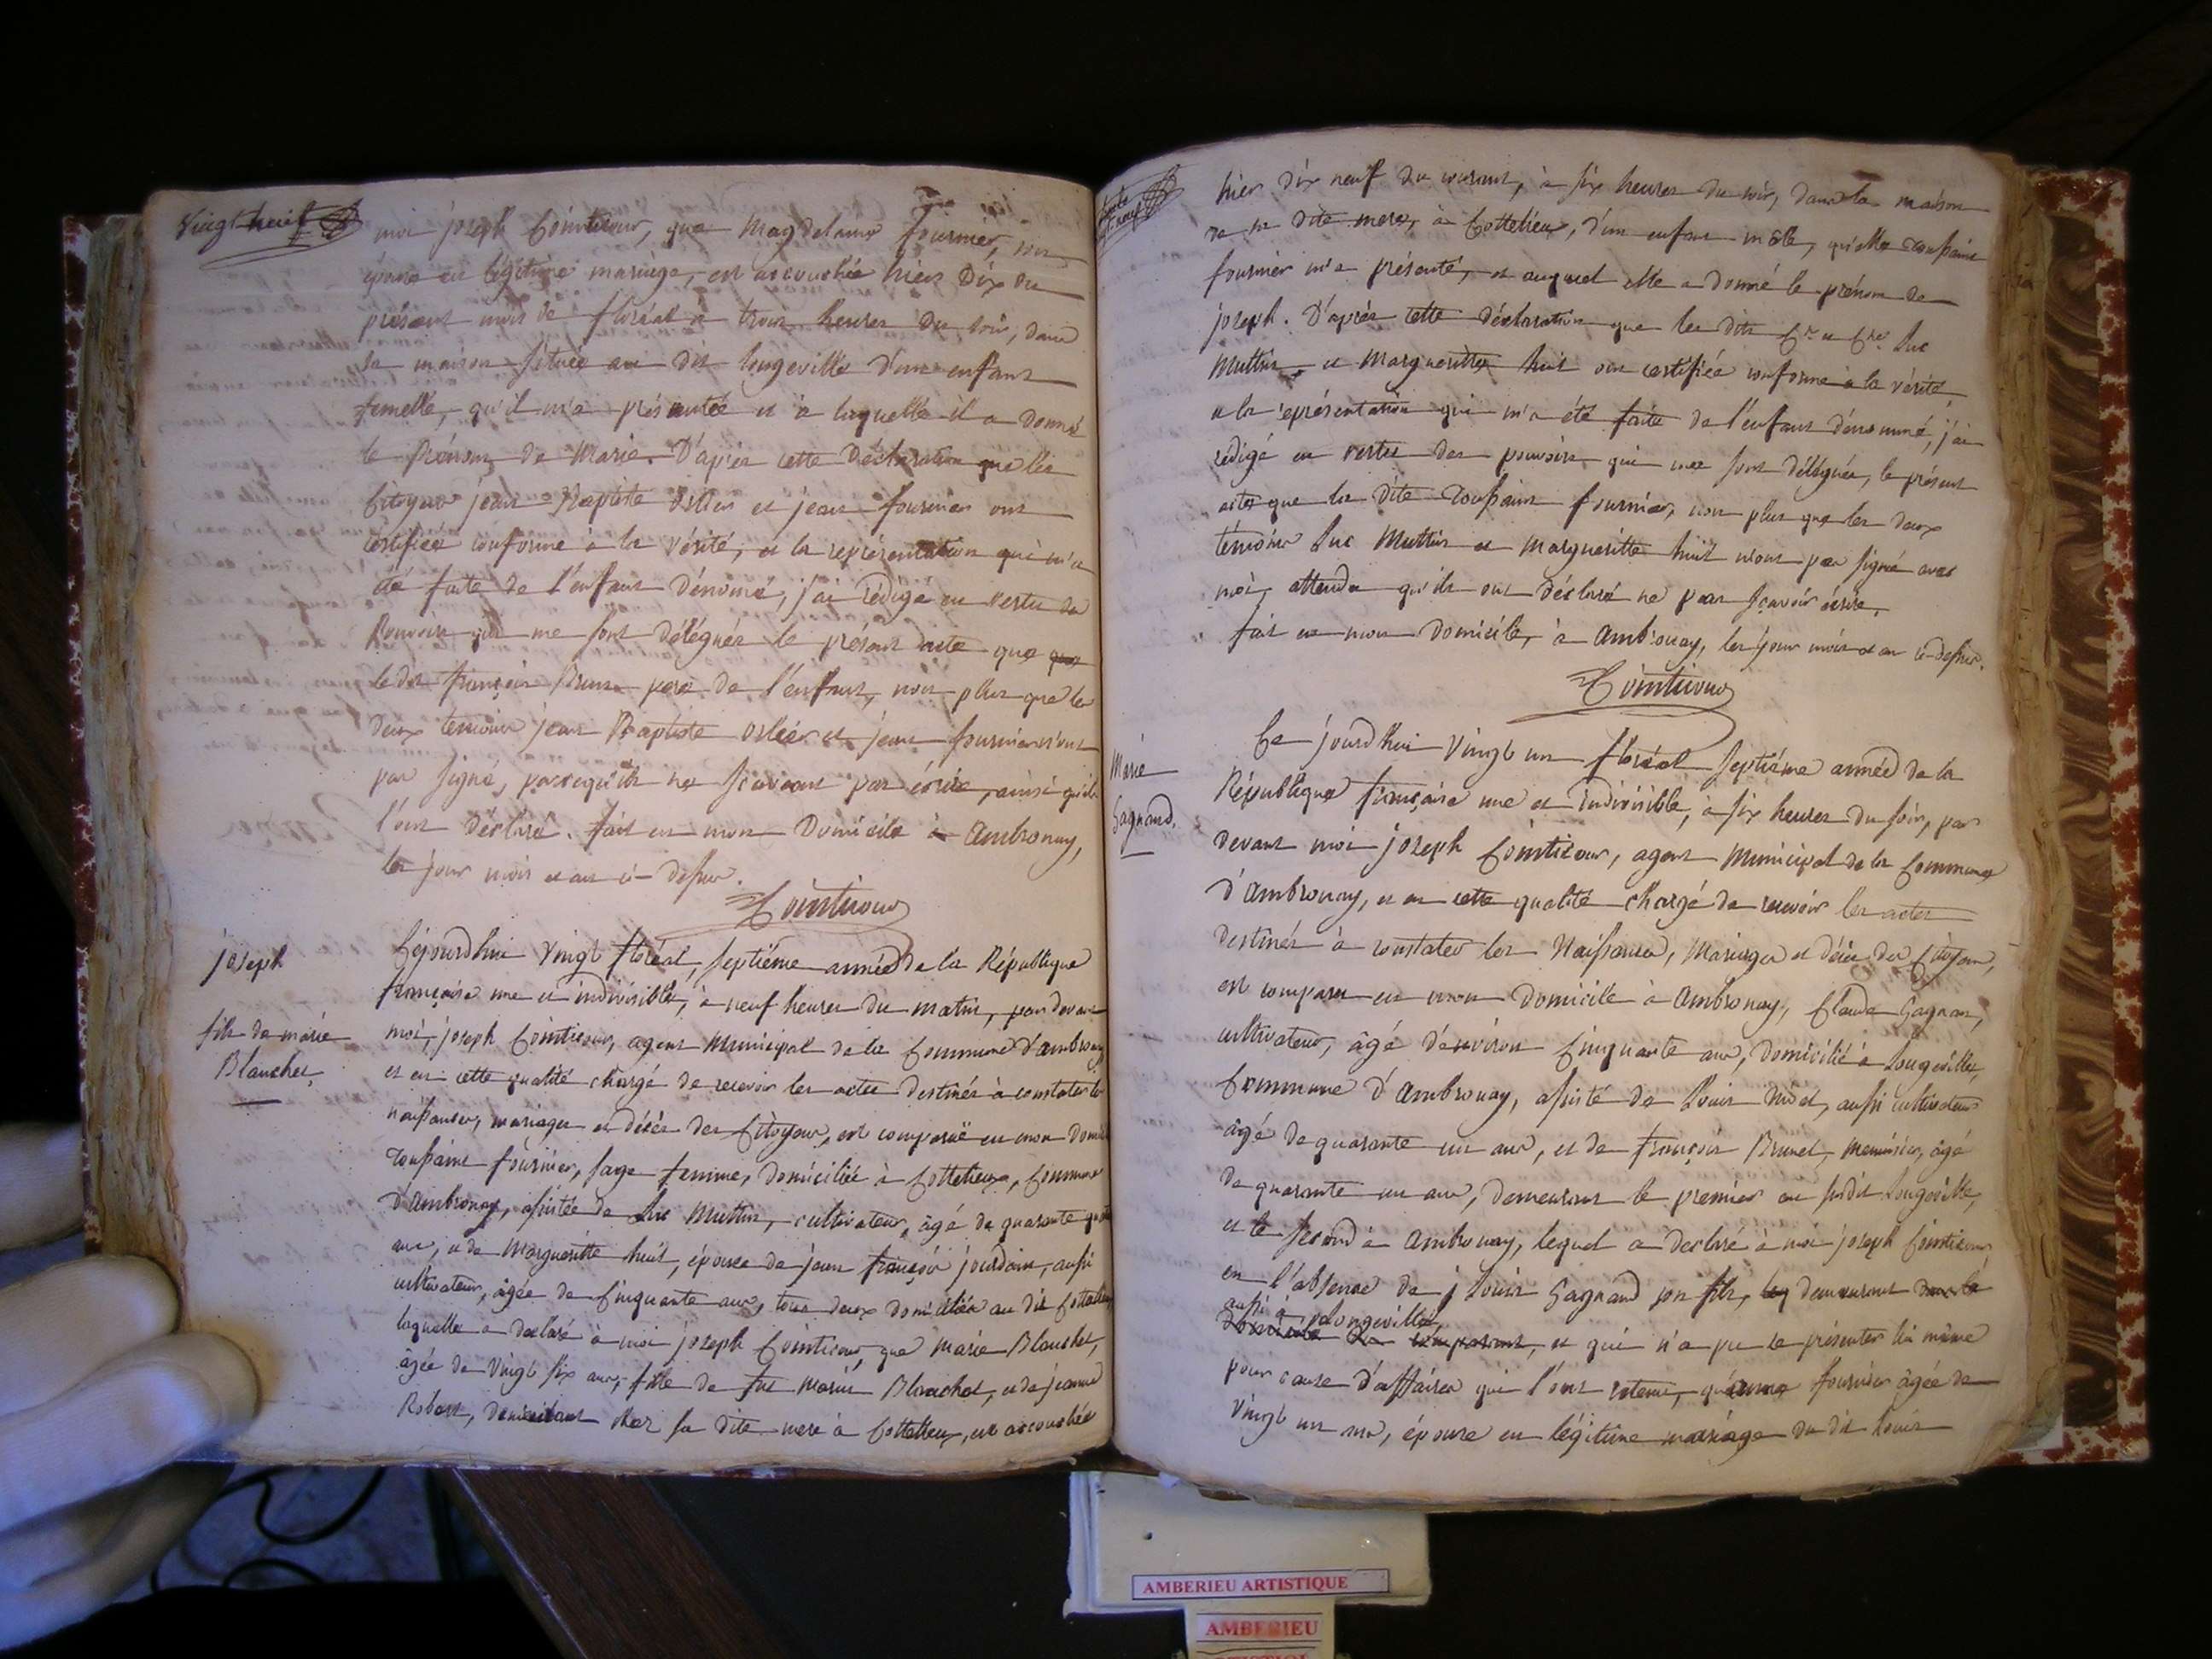 Vingt neuf
moi joseph Cointicour, que Magdelaine fournier, son
épouse en légitime mariage, est accouchée hier dix du
présent mois de floréal à trois heures du soir, dans
sa maison située au dit longeville d'une enfant
femelle, qu'il m'a présentée et à laquelle il a donné
le prénom de Marie. D'après cette déclaration que les
Citoyens jean Baptiste et jean fournier ont
certifiée conforme à la vérité, et la représentation qui m'a
été faite de l'enfant dénomé, j'ai rédigé en vertu des
Pouvoirs qui me sont délégués le présent acte que que
le dit françois pere de l'enfant, non plus que les
deux temoins jean Baptiste et jean fournier n'ont
pas signé, parcequ'ils ne sçavent pas écrire, ainsi qu'ils
l'ont déclaré. fait en mon domicile à Ambronay,
les jour mois et an ci-dessus.
Cointicour
joseph
fils de marie
Blanchet
Cejourdhui Vingt floréal, septième année de la République
française une et indivisible, à neuf heures du matin, par devant
moi, joseph Cointicour, agent Municipal de la Commune d'ambronay
et en cette qualité chargé de recevoir les actes destinés à constater les
naissances, mariages et décès des Citoyens, est comparuë en mon domicile
toussaine fournier, sage femme, domiciliée à Cottelieux, Commune
d'Ambronay, assistée de Luc Muttin, cultivateur, âgé de quarante
ans, et de Margueritte huit, épouse de jean françois jourdain, aussi
cultivateur, âgée de Cinquante ans, tous deux domiciliés au dit Cottelieux
laquelle a declaré à moi joseph Cointicour, que Marie Blanchet,
âgée de Vingt six ans, fille de fut Marin Blanchet, et de jeanne
Robert, demeurant chez sa dite mere à Cottelieux, est accouchée
hier dix neuf du courant, à six heures du soir, dans la maison
de sa dite mere, à Cottelieux, d'un enfant mâle, qu'elle toussaine
fournier m'a présenté, et auquel elle a donné le prénom de
joseph. D'après cette déclaration que les dits Cn et Cne Luc
Muttin, et Margueritte huit ont certifiée conforme à la vérité,
et la représentation qui m'a été faite de l'enfant dénommé, j'ai
rédigé en vertu des pouvoirs qui me sont délégués, le présent
acte que la dite toussaine fournier, non plus que les deux
témoins Luc Muttin et Margueritte huit n'ont pas signé avec
moi, attendu qu'ils ont déclaré ne pas sçavoir écrire,
fait en mon domicile, à Ambronay, les jour mois et an ci-dessus.
Cointicour
Marie
Gagnand.
Ce jourdhui Vingt un floréal septième année de la
République française une et indivisible, à six heures du soir, par
devant moi joseph Cointicour, agent Municipal de la Commune
d'Ambronay, et en cette qualité chargé de recevoir les actes
destinés à constater les Naissances, Mariages et décès des Citoyens,
est comparu en mon domicile à Ambronay, Claude Gagnan,
cultivateur, âgé d'environ Cinquante ans, domicilié à Longeville,
Commune d'Ambronay, assisté de Louis aussi cultivateur
âgé de quarante un ans, et de françois Brunet, menuisier, âgé
de quarante un ans, demeurant le premier au susdit Longeville,
et le second à Ambronay, lequel a declaré à moi joseph Cointicour
en l'absence de j Louis Gagnand son fils, demeurant dans le
aussi à Longeville,
domicile du comparant, et qui n'a pu se présenter lui même
pour cause d'affaires qui l'ont retenu, fournier âgée de
Vingt un ans, épouse en légitime mariage du dit Louis
AMBERIEU ARTISTIQUE
AMBERIEU